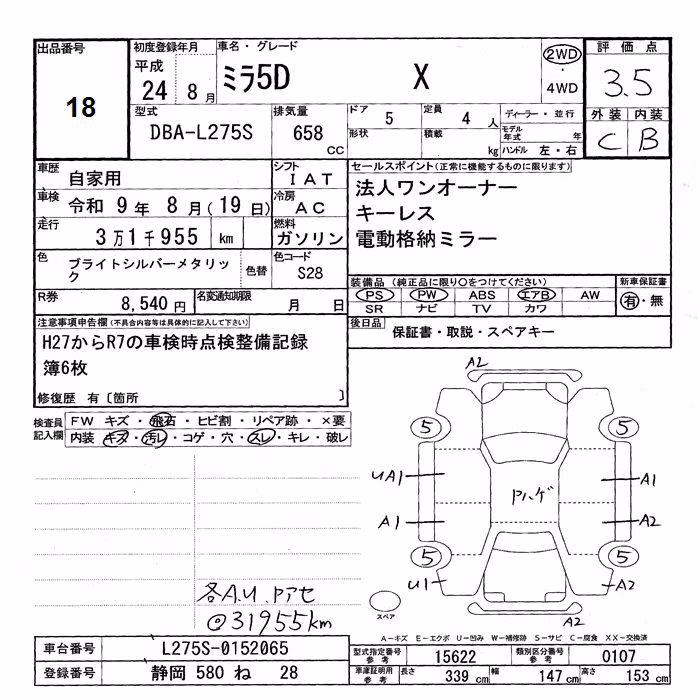 出品番号
18
初度登録年月
平成
24 8 月
車名・グレード
ミラ5D X
2WD
・
4WD
評価点
3.5
外装 内装
C B
型式
DBA-L275S
排気量
658 CC
ドア
5
定員
4 人
形状
積載
kg
ディーラー・並行
モデル年式 年
ハンドル 左・右
車歴
自家用
シフト
IAT
車検
令和 9 年 8 月(19 日)
冷房
AC
走行
3 万 1 千 955 km
燃料
ガソリン
色
ブライトシルバーメタリック
色替
色コード
S28
R券
8,540 円
名変通知期限
月 日
セールスポイント(正常に機能するものに限ります)
法人ワンオーナー
キーレス
電動格納ミラー
装備品(純正品に限り○をつけてください)
PS PW ABS エアB AW
SR ナビ TV カワ
新車保証書
有・無
後日品
保証書・取説・スペアキー
注意事項申告欄(不具合内容等は具体的に記入して下さい)
H27からR7の車検時点検整備記録
簿6枚
修復歴 有〔箇所 〕
検査員記入欄
FW キズ・飛石・ヒビ割・リペア跡・×要
内装 キズ・汚レ・コゲ・穴・スレ・キレ・破レ
A2
5 5
UA1 A1
Pハゲ
A1 A2
5 5
U1 A2
A2
スペア
各A.U.Pアセ
◎31955km
A-キズ E-エクボ U-凹み W-補修跡 S-サビ C-腐食 XX-交換済
車台番号
L275S-0152065
登録番号
静岡 580 ね 28
型式指定番号
参考
15622
類別区分番号
参考
0107
車庫証明用
参考
長さ
339 cm
幅
147 cm
高さ
153 cm